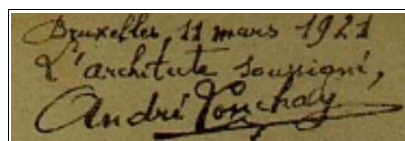 Bruxelles, 11 mars 1921
L'architecte soussigné,
André Ponchay